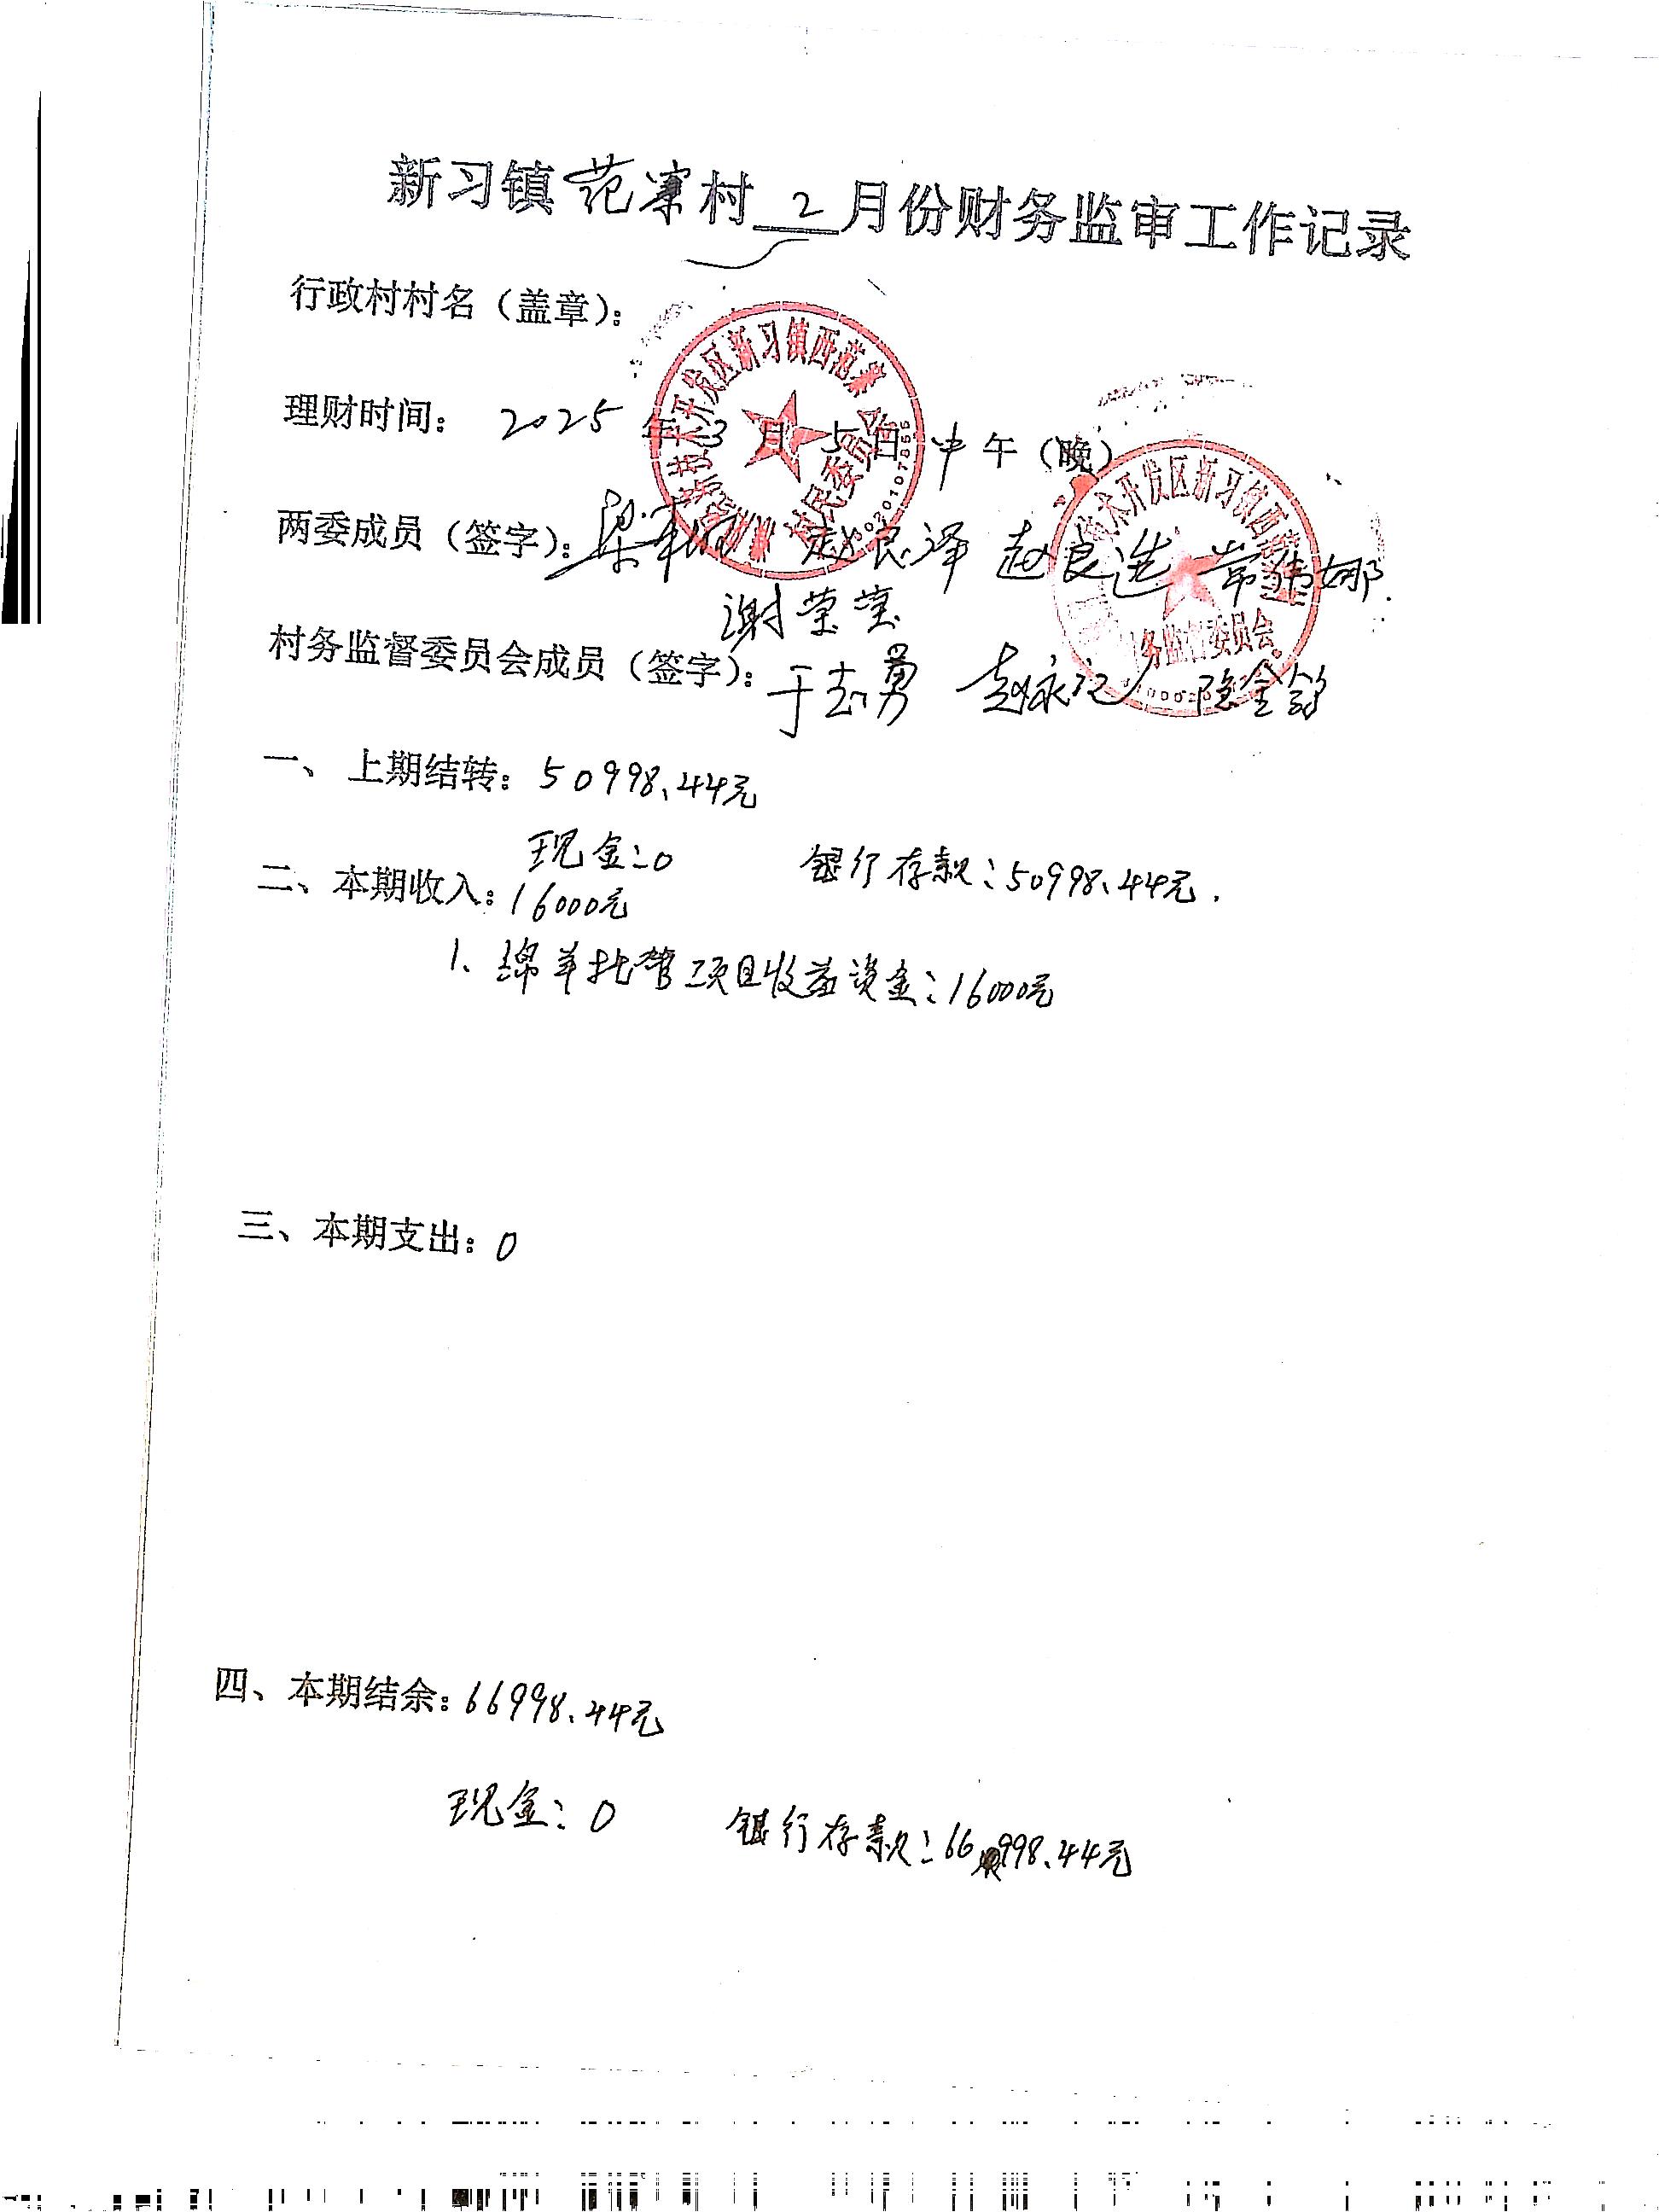 新习镇范寨村 2 月份财务监审工作记录
行政村村名（盖章）：
理财时间： 2025 年 3 月 5 日 中 午（晚）
两委成员（签字）： 赵良泽 赵良选 常 娜
谢莹莹
村务监督委员会成员（签字）： 于志勇 赵永 金
新习镇西范寨
村民委员会
术开发区新习镇西范
务监督委员会
一、上期结转：50998.44元
现金：0 银行存款：50998.44元.
二、本期收入：16000元
1、绵羊托管项目收益资金：16000元
三、本期支出：0
四、本期结余：66998.44元
现金：0 银行存款：66998.44元